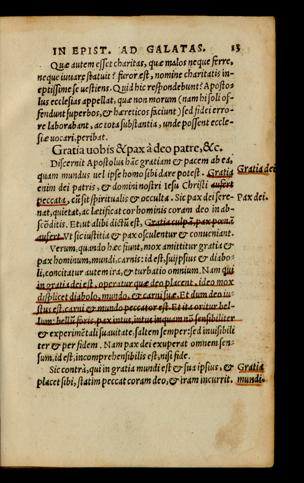 IN EPIST. AD GALATAS. 13
Quæ autem esset charitas, quæ malos neque ferre,
neque iuuare statuit? furor est, nomine charitatis in-
eptissime se uestiens. Quid hic respondebunt? Aposto-
lus ecclesias appellat, quæ non morum (nam hi soli of-
fendunt superbos, & hæreticos faciunt) sed fidei erro-
re laborabant, ac tota substantia, unde possent eccle-
siæ uocari, peribat.
Gratia uobis & pax à deo patre, &c.
Discernit Apostolus hãc gratiam & pacem ab ea,
quam mundus uel ipse homo sibi dare potest. Gratia Gratia dei
enim dei patris, & domini nostri Iesu Christi aufert
peccata, cũ sit spiritualis & occulta. Sic pax dei sere- Pax dei.
nat, quietat, ac lætificat cor hominis coram deo in ab-
scõdito. Et, ut alibi dictũ est, Gratia culpã, pax pœnã
aufert. Vt sic iustitia & pax osculentur & conueniant.
Verum, quando hæc fiunt, mox amittitur gratia &
pax hominum, mundi, carnis: id est, suijpsius & diabo-
li, concitatur autem ira, & turbatio omnium. Nam qui
in gratia dei est, operatur quæ deo placent, ideo mox
displicet diabolo, mundo, & carni suæ. Et dum deo iu-
stus est, carni & mundo peccator est. Et ita oritur bel-
lum: bellũ foris, pax intus, intus inquam nõ sensibiliter
& experimẽtali suauitate, saltem semper: sed inuisibili
ter & per fidem. Nam pax dei exuperat omnem sen-
sum, id est, incomprehensibilis est, nisi fide.
Sic contrà, qui in gratia mundi est & sua ipsius, & Gratia
placet sibi, statim peccat coram deo, & iram incurrit. mundi.